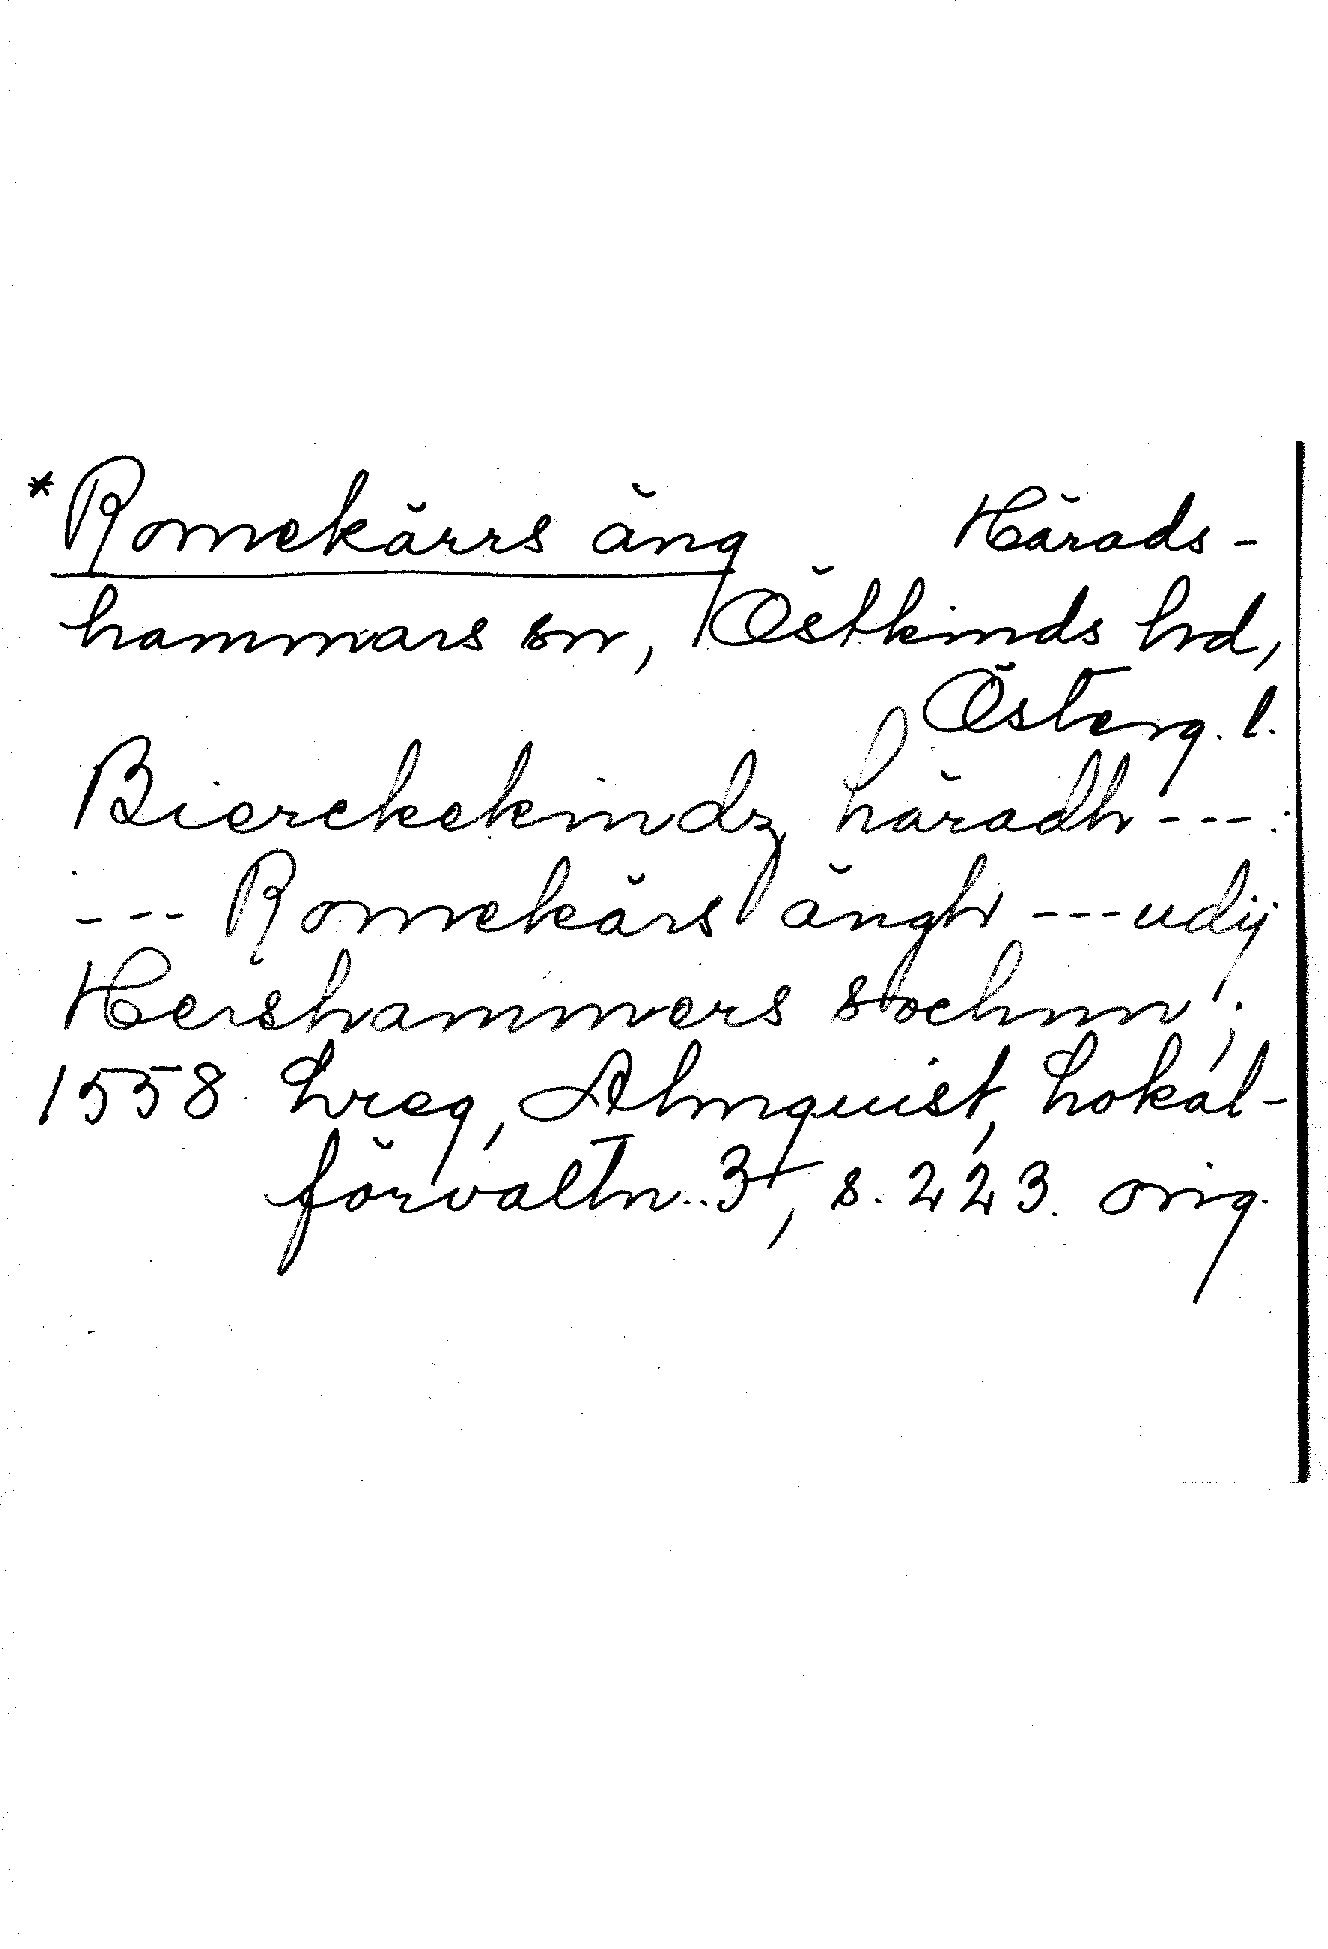 *Romekärrs äng Härads-
hammars sn, Östkinds hrd,
Österg. l.
Bierckekindz häradh ---
--- Romekärs ängh --- udij
Hershammers sochnn;
1558 Lreg, Almquist, Lokal-
förvaltn. 3, s. 223. orig.